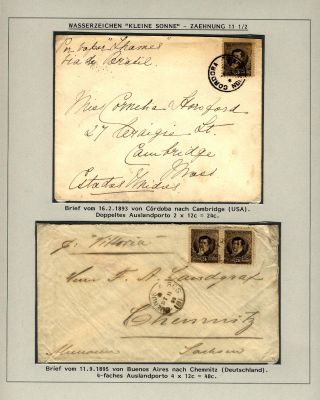 WASSERZEICHEN "KLEINE SONNE" - ZAEHNUNG 11 1/2
Por vapor "Thames"
via de Brasil.
CORDOBA
Miss Cornelia Horsford
27 Craigie St.
Cambridge
Mass
Estados Unidos
Brief vom 16.2.1893 von Córdoba nach Cambridge (USA).
Doppeltes Auslandporto 2 x 12c = 24c.
p. "Vitoria"
Herrn F. A. Landgraf
Chemnitz
Sachsen
Brief vom 11.9.1895 von Buenos Aires nach Chemnitz (Deutschland).
4-faches Auslandporto 4 x 12c = 48c.